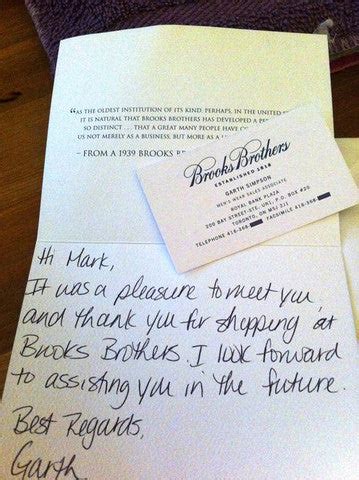 “AS THE OLDEST INSTITUTION OF ITS KIND, PERHAPS, IN THE UNITED
IT IS NATURAL THAT BROOKS BROTHERS HAS DEVELOPED A
SO DISTINCT . . . THAT A GREAT MANY PEOPLE HAVE
US NOT MERELY AS A BUSINESS, BUT MORE AS A
– FROM A 1939 BROOKS
Brooks Brothers
ESTABLISHED 1818
GARTH SIMPSON
MEN'S WEAR SALES ASSOCIATE
ROYAL BANK PLAZA
200 BAY STREET-STE, UR1, P.O. BOX #20
TORONTO, ON M5J 2J1
TELEPHONE 416-368- FACSIMILE 416-368-
Hi Mark,
It was a pleasure to meet you
and thank you for shopping at
Brooks Brothers. I look forward
to assisting you in the future.
Best Regards,
Garth